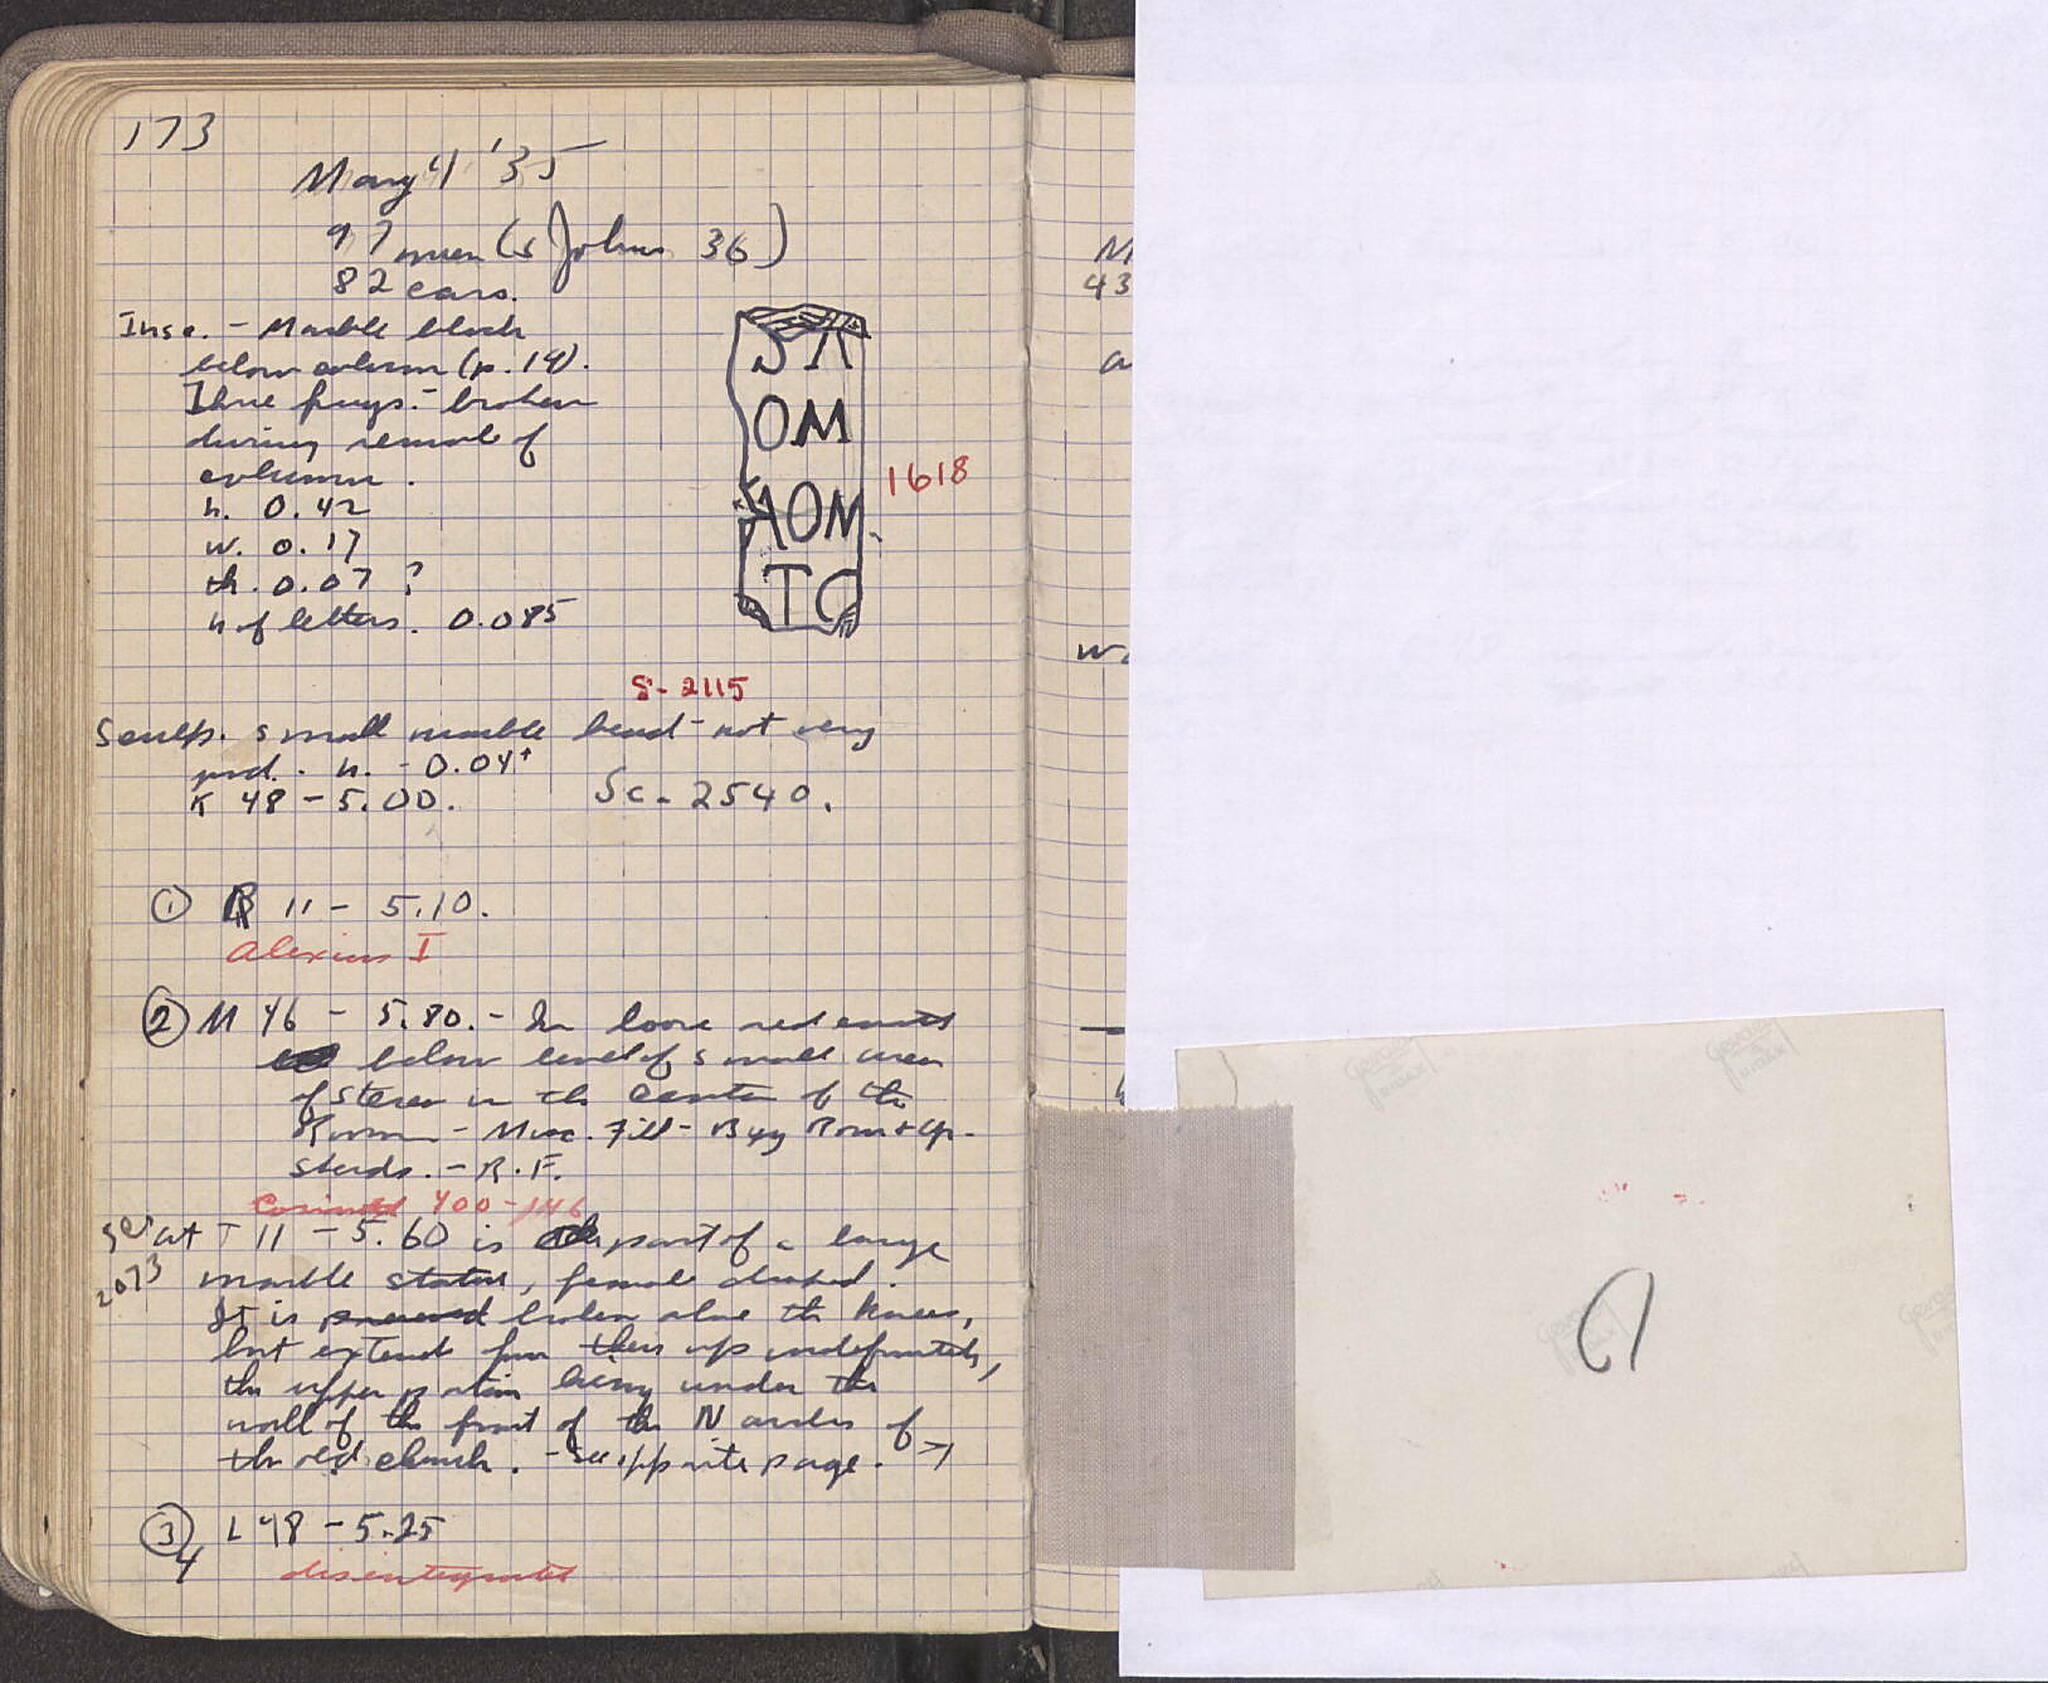 173
May 4 '35
97 men (s Johns 36)
82 cars.
Insc. - Marble block
below column (p. 19).
Three frags. - broken
during removal of
column.
h. 0.42
w. 0.17
th. 0.07 ?
h of letters. 0.085
OM
AOM
TC
1618
S-2115
Sculp. small marble head - not very
good. h. - 0.04+
K 48 - 5.00. Sc - 2540.
① R 11 - 5.10.
Alexius I
② M 46 - 5.80. - In loose red
below level of small area
of stereo in the center of the
Room - Misc. Fill - Byz Rom + Gr.
sherds. - R.F.
400 -
at T 11 - 5.60 is part of a large
2073
marble statue, female draped.
It is broken above the knees,
but extends from there up indefinitely,
the upper portion being under the
wall of the front of the Narthex of
the old church. - See opposite page. →
③ L 48 - 5.25
4
disintegrated
M
43
a
w
Gevaert
RIDAX